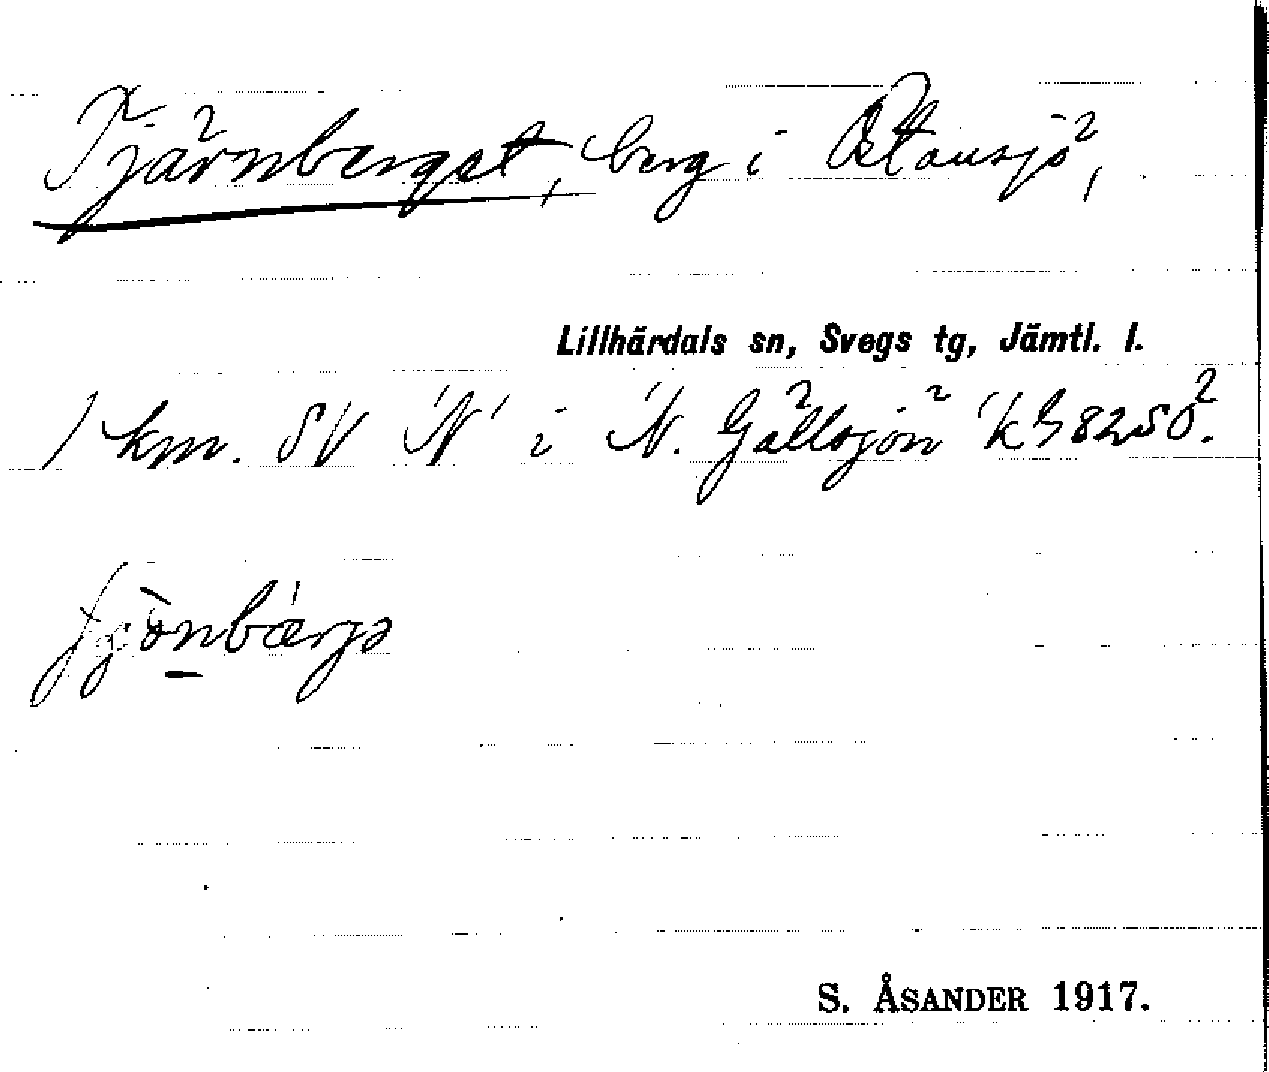 Tjärnberget, berg i Östansjö,
Lillhärdals sn, Svegs tg, Jämtl. l.
1 km. SV 'N' i 'N. Gällsjön' k G 8250.
S. ÅSANDER 1917.